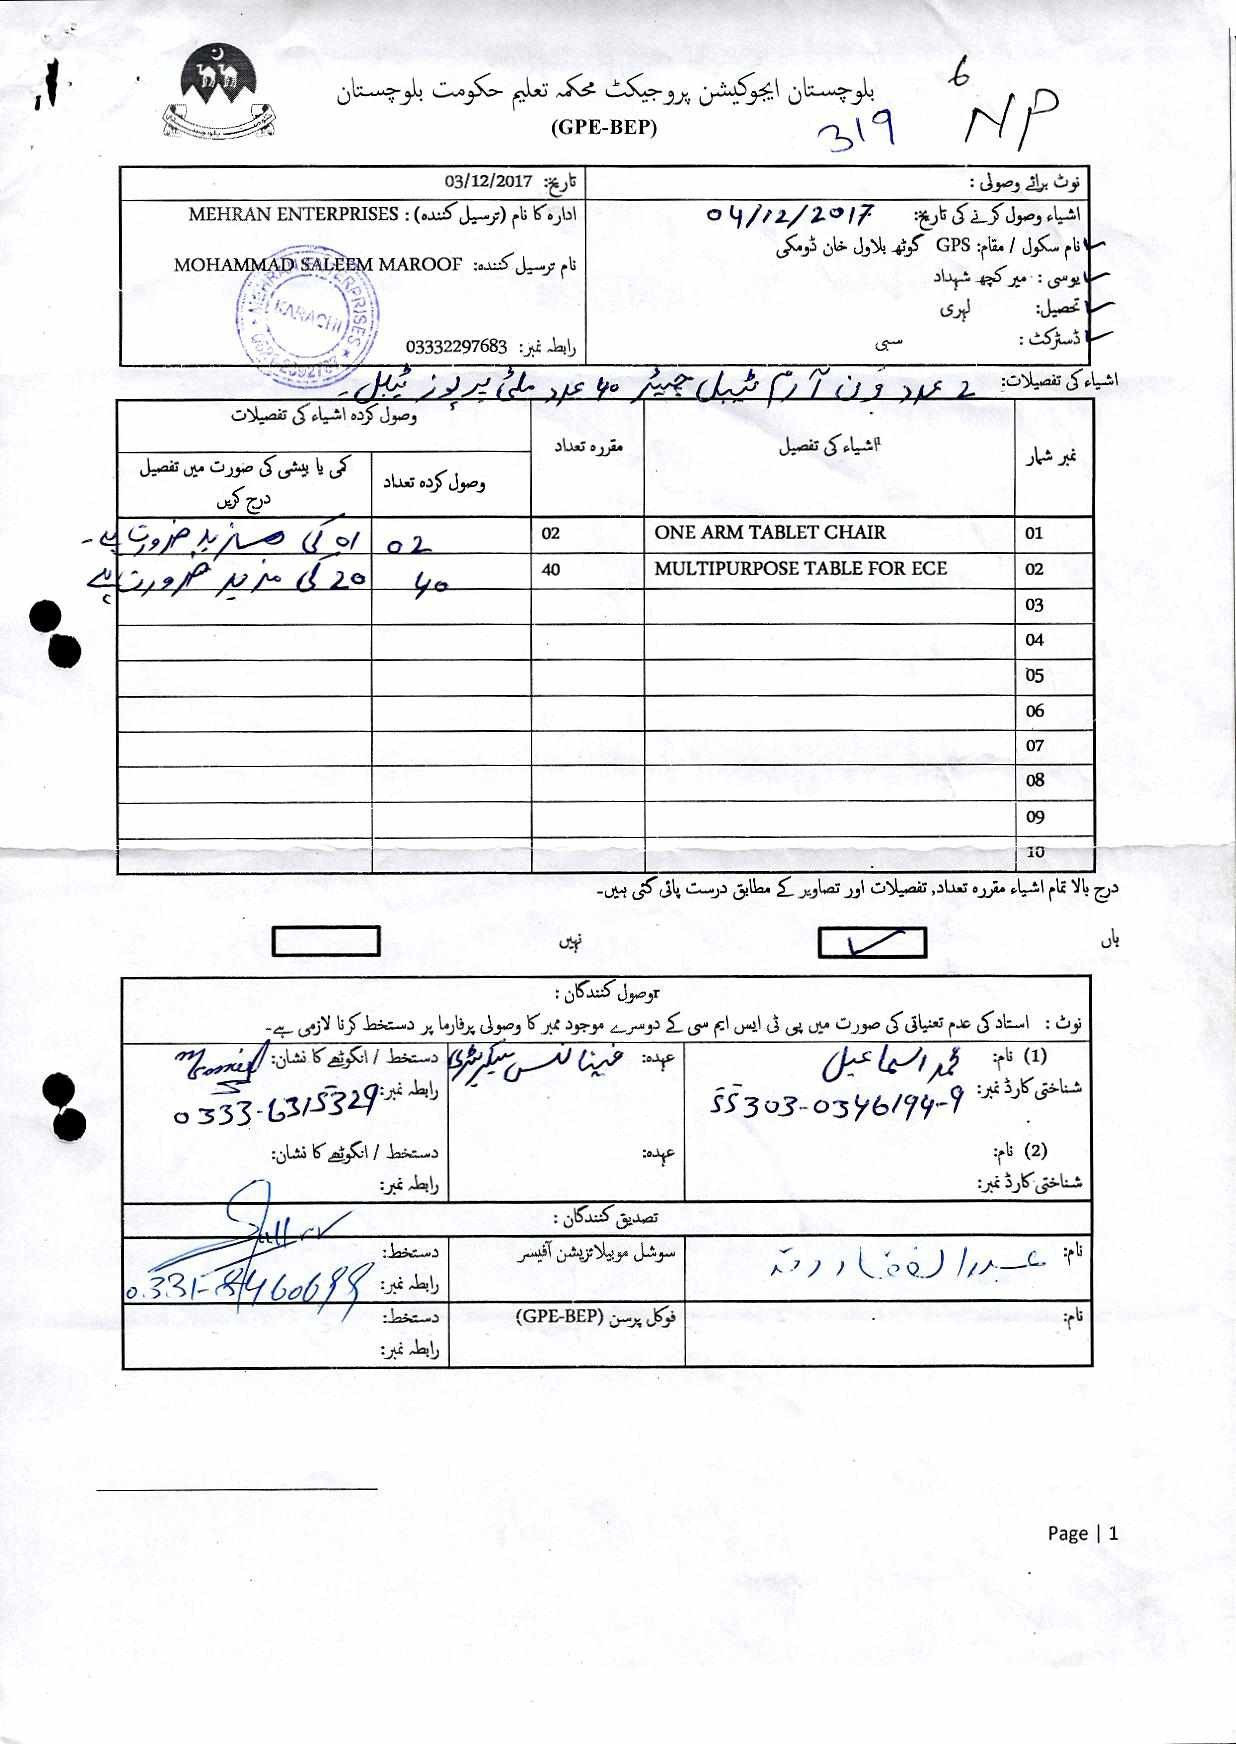 بلوچستان ایجوکیشن پروجیکٹ محکمہ تعلیم حکومت بلوچستان
(GPE-BEP)
6
NP
319
نوٹ برائے وصولی :
تاریخ: 03/12/2017
اشیاء وصول کرنے کی تاریخ: 04/12/2017
ادارہ کا نام (ترسیل کنندہ) : MEHRAN ENTERPRISES
نام سکول / مقام: GPS گوٹھ بلاول خان ڈومکی
نام ترسیل کنندہ: MOHAMMAD SALEEM MAROOF
یوسی : میر کچھ شہداد
تحصیل: لہڑی
ڈسٹرکٹ : سبی
رابطہ نمبر: 03332297683
MEHRAN ENTERPRISES
KARACHI
اشیاء کی تفصیلات: 2 عدد ون آرم ٹیبل چیئر 40 عدد ملٹی پرپوز ٹیبل۔
نمبر شمار
اشیاء کی تفصیل
مقررہ تعداد
وصول کردہ اشیاء کی تفصیلات
وصول کردہ تعداد
کمی یا بیشی کی صورت میں تفصیل درج کریں
01 ONE ARM TABLET CHAIR 02 02 01 کی مزید ضرورت ہے۔
02 MULTIPURPOSE TABLE FOR ECE 40 40 20 کی مزید ضرورت ہے
03
04
05
06
07
08
09
10
درج بالا تمام اشیاء مقررہ تعداد, تفصیلات اور تصاویر کے مطابق درست پائی گئی ہیں۔
ہاں ✓ نہیں
وصول کنندگان :
نوٹ : استاد کی عدم تعنیاتی کی صورت میں پی ٹی ایس ایم سی کے دوسرے موجود ممبر کا وصولی پرفارما پر دستخط کرنا لازمی ہے۔
(1) نام: محمد اسماعیل
عہدہ: فینانس سیکریٹری
دستخط / انگوٹھے کا نشان:
شناختی کارڈ نمبر: 55303-0346194-9
رابطہ نمبر: 0333-6315329
(2) نام:
عہدہ:
دستخط / انگوٹھے کا نشان:
شناختی کارڈ نمبر:
رابطہ نمبر:
تصدیق کنندگان :
نام: عبدالغفار
سوشل موبیلائزیشن آفیسر
دستخط:
رابطہ نمبر:
نام:
فوکل پرسن (GPE-BEP)
دستخط:
رابطہ نمبر:
Page | 1